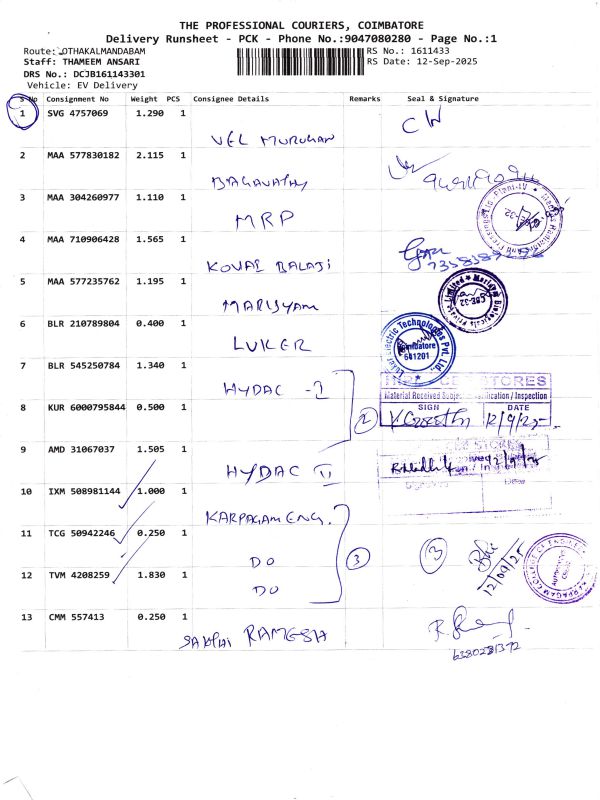 THE PROFESSIONAL COURIERS, COIMBATORE
Delivery Runsheet - PCK - Phone No.:9047080280 - Page No.:1
Route: OTHAKALMANDABAM
RS No.: 1611433
Staff: THAMEEM ANSARI
RS Date: 12-Sep-2025
DRS No.: DCJB161143301
Vehicle: EV Delivery
S No Consignment No Weight PCS Consignee Details Remarks Seal & Signature
1 SVG 4757069 1.290 1
VEL MURUGAN
CW
2 MAA 577830182 2.115 1
BAGAVATHY
3 MAA 304260977 1.110 1
MRP
4 MAA 710906428 1.565 1
KOVAI BALAJI
5 MAA 577235762 1.195 1
MARIYAM
CBE-32
6 BLR 210789804 0.400 1
LUKER
Coimbatore
641201
7 BLR 545250784 1.340 1
HYDAC - I
STORES
Material Received Subject Verification / Inspection
SIGN DATE
12/9/25
8 KUR 6000795844 0.500 1
2
9 AMD 31067037 1.505 1
HYDAC II
10 IXM 508981144 1.000 1
KARPAGAM ENG.
11 TCG 50942246 0.250 1
DO
3
3
12/09/25
12 TVM 4208259 1.830 1
DO
13 CMM 557413 0.250 1
SAKTHI RAMESH
6380281372